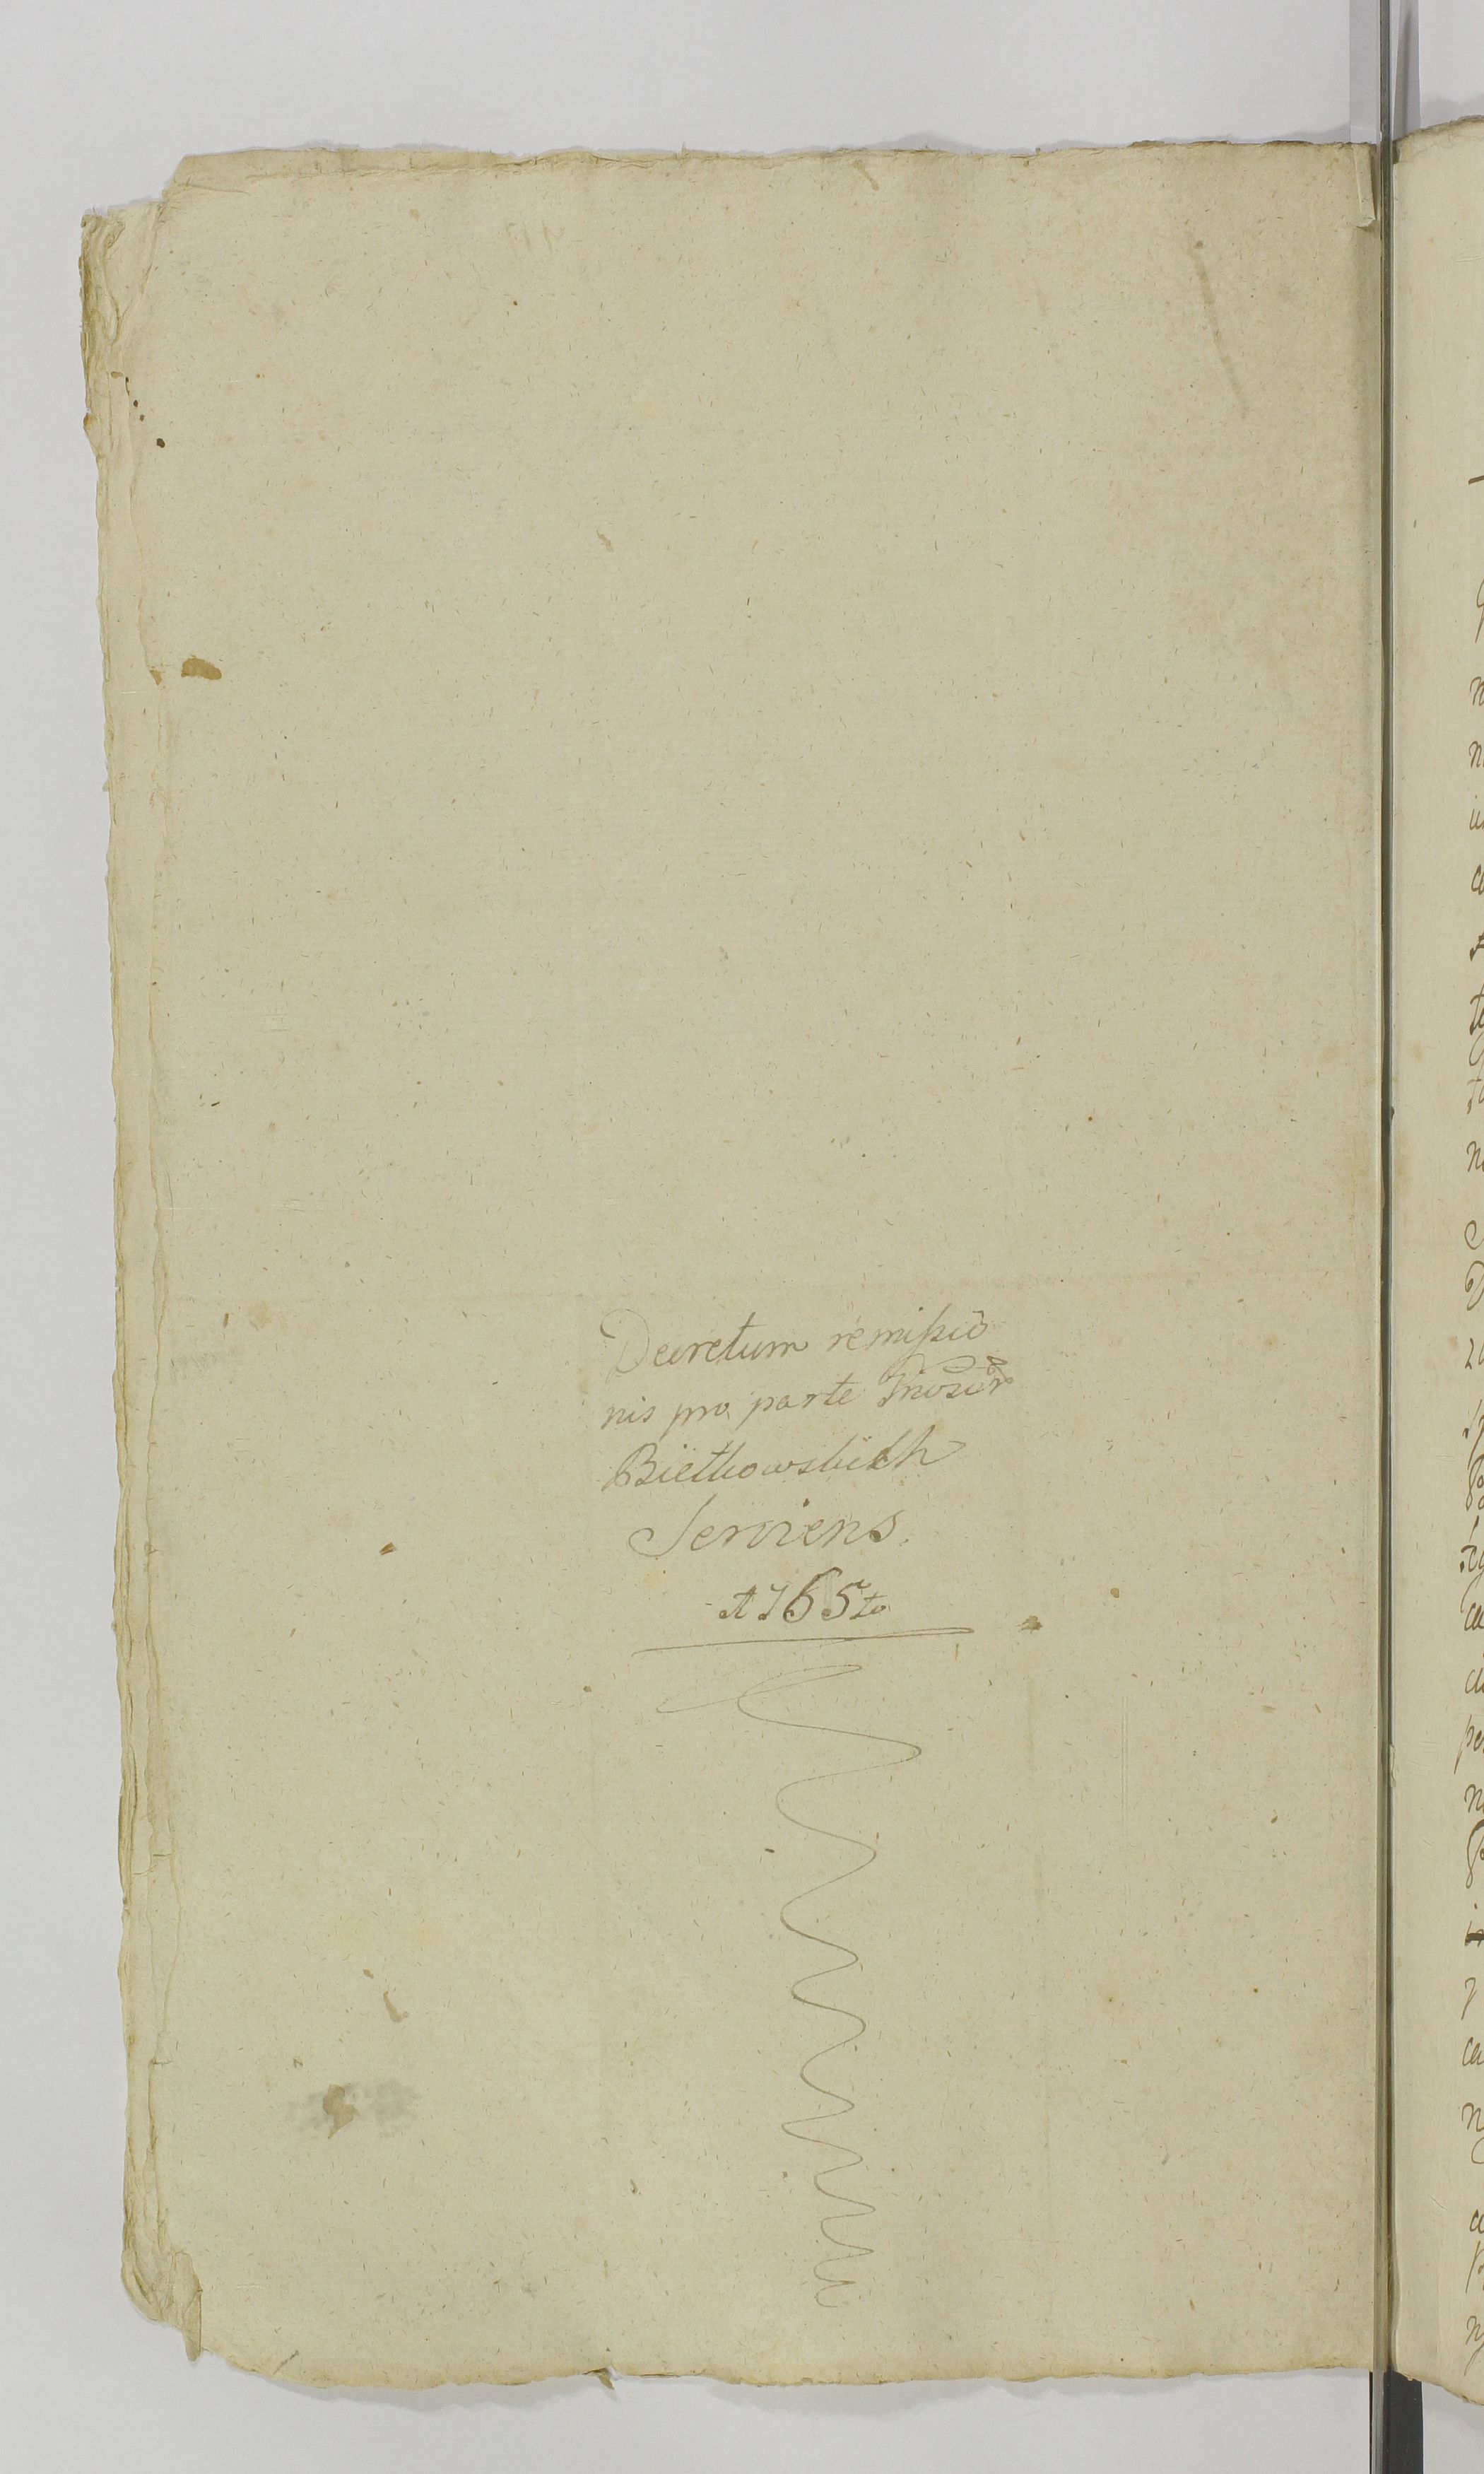 Decretum remissio
nis pro parte Gnosor
Bietkowskich
Serviens.
A 1765to